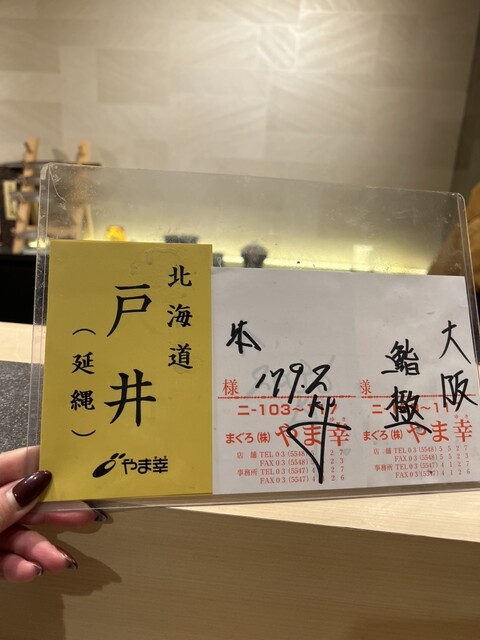 北海道
戸井
（延縄）
やま幸
本
179.2
様
ニ-103〜
まぐろ(株) やま幸
店 舗 TEL 03 (5548)
FAX 03 (5548)
事務所 TEL 03 (5547)
FAX 03 (5547)
大阪
鮨
様
まぐろ(株) やま幸
店 舗 TEL 03 (5548) 5527
FAX 03 (5548) 5523
事務所 TEL 03 (5547) 4127
FAX 03 (5547) 4126